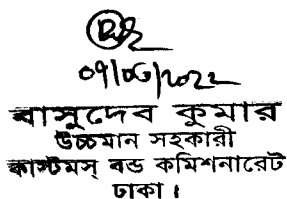 ০৭/০৩/২০২২
বাসুদেব কুমার
উচ্চমান সহকারী
কাস্টমস্ বন্ড কমিশনারেট
ঢাকা ।